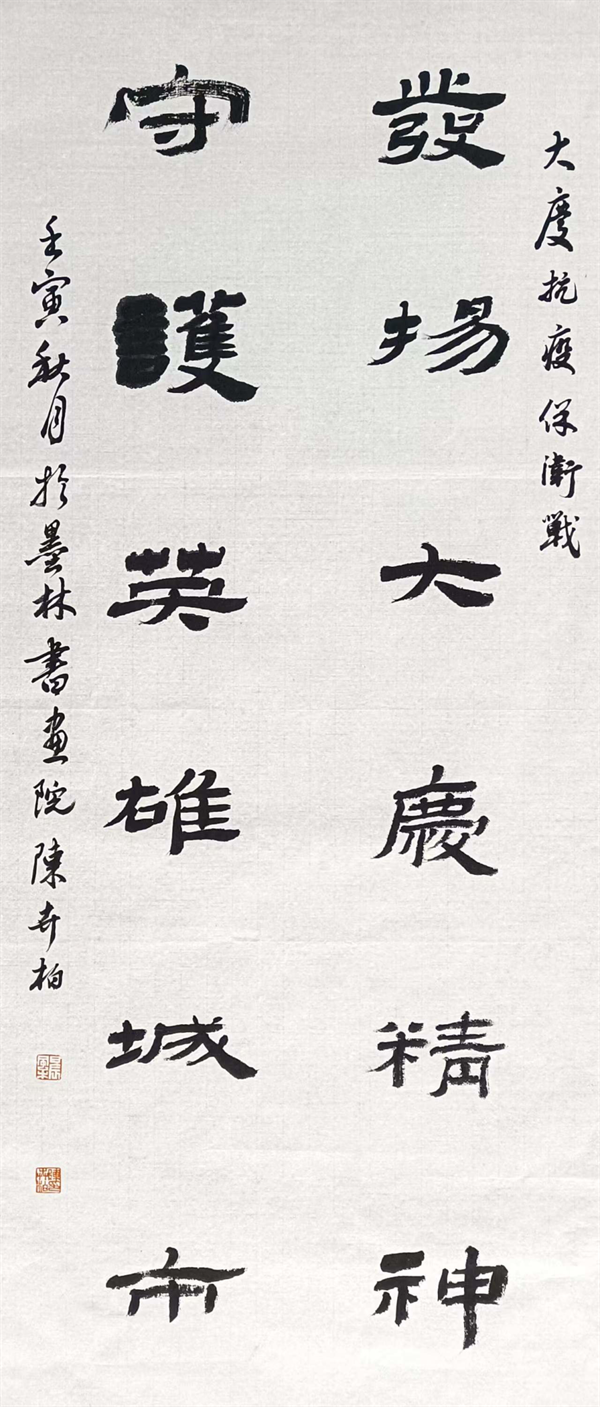 大慶抗疫保衛戰
發揚大慶精神
守護英雄城市
壬寅秋月於墨林書畫院陳柏